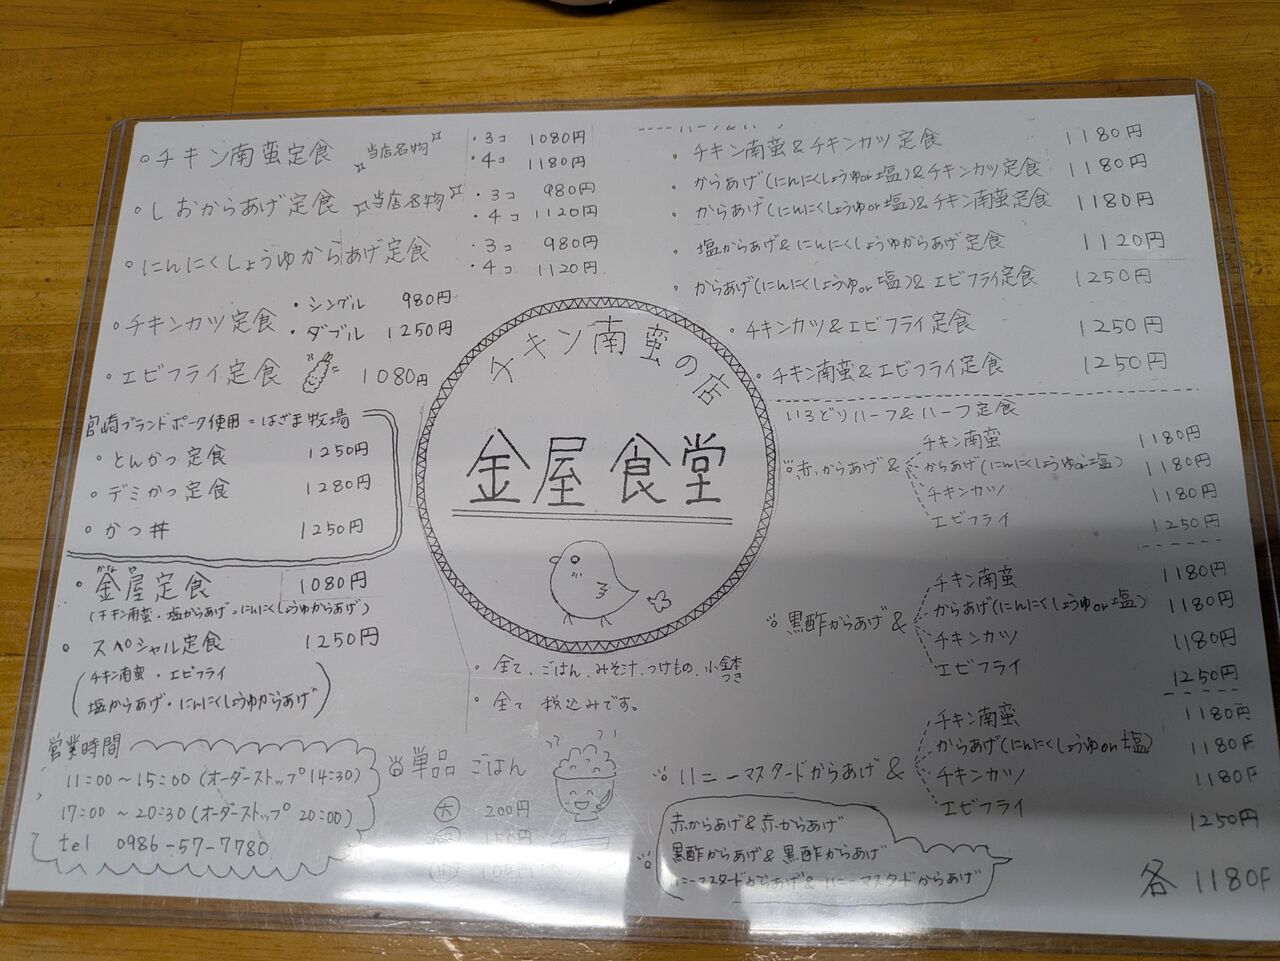 ○チキン南蛮定食 当店名物 ・3コ 1080円
・4コ 1180円
○しおからあげ定食 当店名物 ・3コ 980円
・4コ 1120円
○にんにくしょうゆからあげ定食 ・3コ 980円
・4コ 1120円
○チキンカツ定食 ・シングル 980円
・ダブル 1250円
・エビフライ定食 1080円
宮崎ブランドポーク使用=はざま牧場
○とんかつ定食 1250円
○デミかつ定食 1280円
○かつ丼 1250円
かな や
○金屋定食 1080円
(チキン南蛮・塩からあげ・にんにくしょうゆからあげ)
○スペシャル定食 1250円
(チキン南蛮・エビフライ
塩からあげ・にんにくしょうゆからあげ)
営業時間
11:00〜15:00(オーダーストップ14:30)
17:00〜20:30(オーダーストップ20:00)
tel 0986-57-7780
チキン南蛮の店
金屋食堂
・全て、ごはん、みそ汁、つけもの、小鉢つき
・全て 税込みです。
単品 ごはん
大 200円
150円
100円
ハーフ&ハーフ
・チキン南蛮&チキンカツ定食 1180円
・からあげ(にんにくしょうゆor塩)&チキンカツ定食 1180円
・からあげ(にんにくしょうゆor塩)&チキン南蛮定食 1180円
・塩からあげ&にんにくしょうゆからあげ定食 1120円
・からあげ(にんにくしょうゆor塩)&エビフライ定食 1250円
・チキンカツ&エビフライ定食 1250円
・チキン南蛮&エビフライ定食 1250円
いろどりハーフ&ハーフ定食
赤からあげ& チキン南蛮 1180円
からあげ(にんにくしょうゆor塩) 1180円
チキンカツ 1180円
エビフライ 1250円
黒酢からあげ& チキン南蛮 1180円
からあげ(にんにくしょうゆor塩) 1180円
チキンカツ 1180円
エビフライ 1250円
ハニーマスタードからあげ& チキン南蛮 1180円
からあげ(にんにくしょうゆor塩) 1180円
チキンカツ 1180円
エビフライ 1250円
赤からあげ&赤からあげ
黒酢からあげ&黒酢からあげ
ハニーマスタードからあげ&ハニーマスタードからあげ
各 1180円